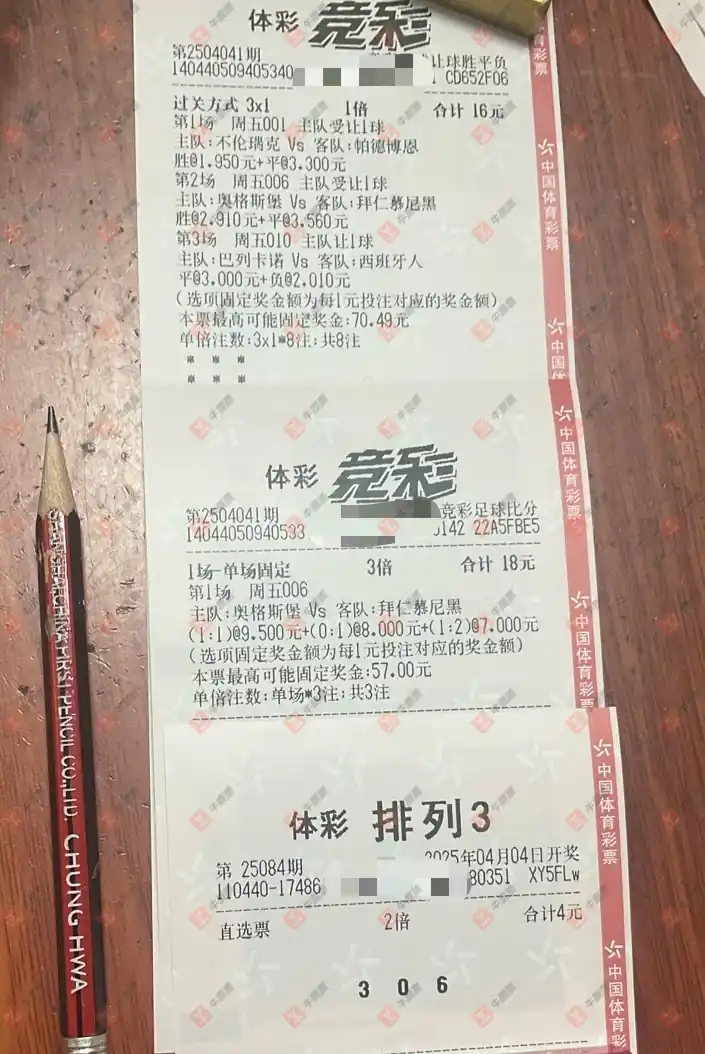 体彩 竞彩
第2504041期 让球胜平负
140440509405340 CD652F06
过关方式 3x1 1倍 合计 16元
第1场 周五001 主队受让1球
主队:不伦瑞克 Vs 客队:帕德博恩
胜@1.950元+平@3.300元
第2场 周五006 主队受让1球
主队:奥格斯堡 Vs 客队:拜仁慕尼黑
胜@2.910元+平@3.560元
第3场 周五010 主队让1球
主队:巴列卡诺 Vs 客队:西班牙人
平@3.000元+负@2.010元
(选项固定奖金额为每1元投注对应的奖金额)
本票最高可能固定奖金:70.49元
单倍注数:3x1*8注;共8注
* * *
* * *
育彩票
中国体育彩票
中国体
体彩 竞彩
第2504041期 竞彩足球比分
14044050940533 0142 22A5FBE5
1场-单场固定 3倍 合计 18元
第1场 周五006
主队:奥格斯堡 Vs 客队:拜仁慕尼黑
(1:1)@9.500元+(0:1)@8.000元+(1:2)@7.000元
(选项固定奖金额为每1元投注对应的奖金额)
本票最高可能固定奖金:57.00元
单倍注数:单场*3注;共3注
中国体育彩票
中国体育彩票
体彩 排列3
第 25084期 2025年04月04日开奖
110440-17486 80351 XY5FLw
直选票 2倍 合计4元
3 0 6
中国体育彩票
中国体育彩票
PENCIL CO.,LTD. CHUNG HWA
牛魔图